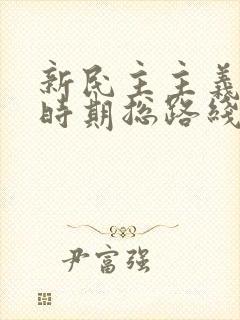 新民主主義
時期總路綫
尹富强